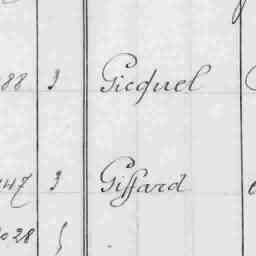 88 3 Gicquel
47 3 Giffard
028